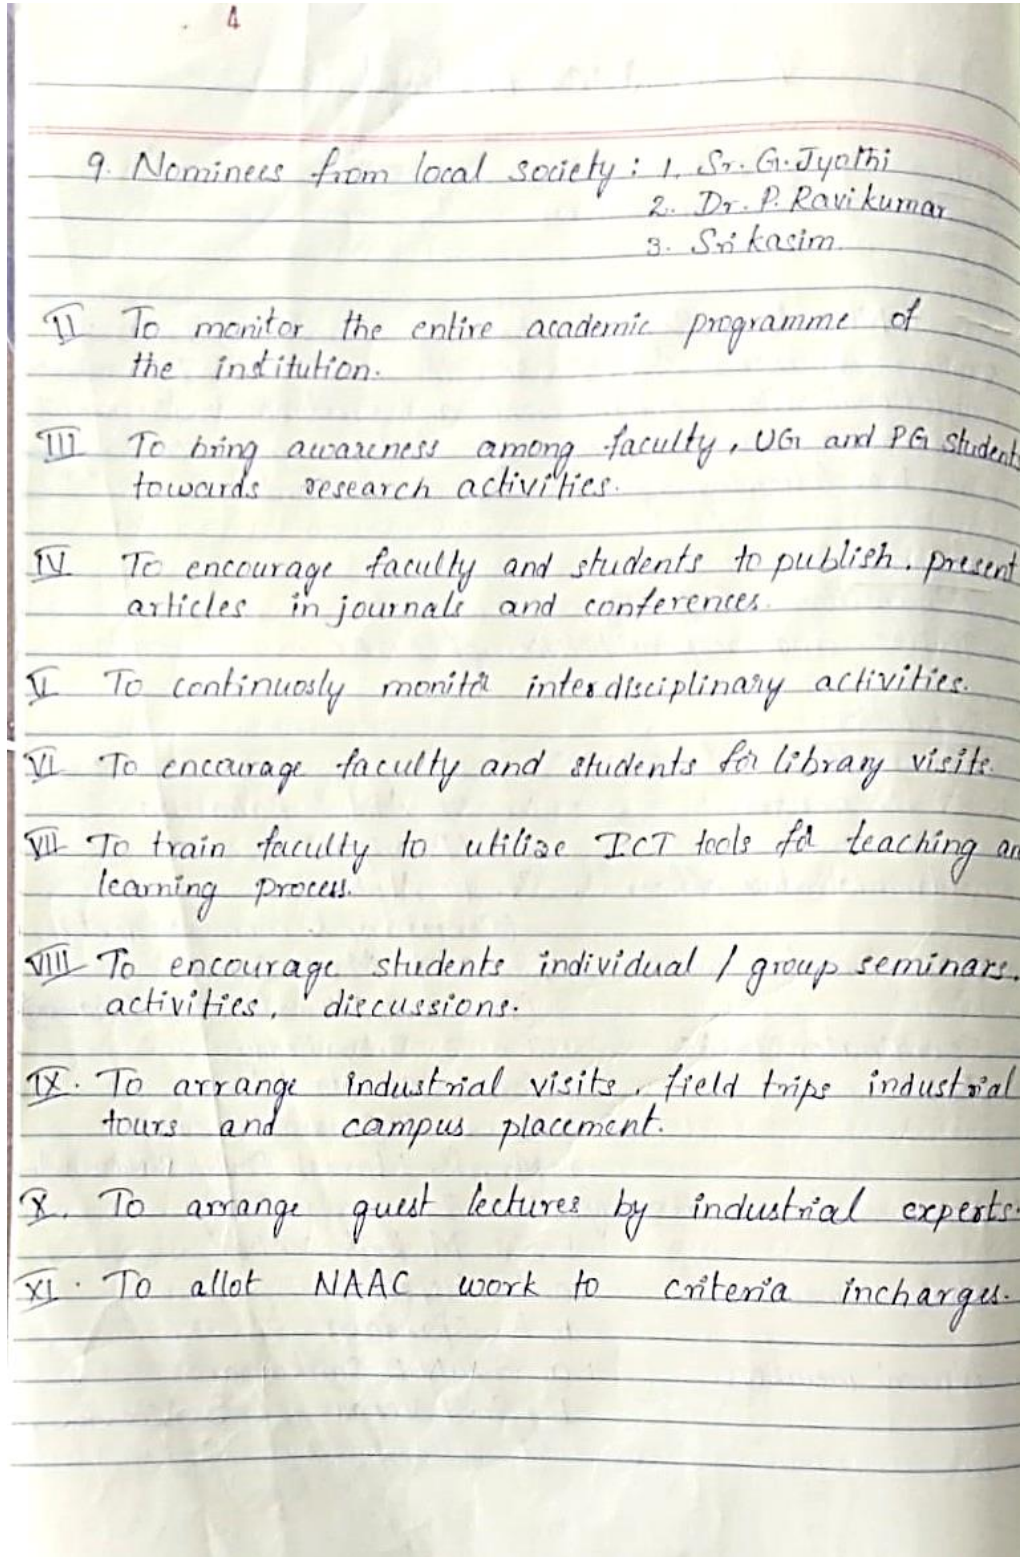 4
9. Nominees from local society : 1. Sr. G. Jyothi
2. Dr. P. Ravi kumar
3. Sri kasim.
II To monitor the entire academic programme of
the institution.
III To bring awareness among faculty, UG and PG students
towards research activities.
IV To encourage faculty and students to publish, present
articles in journals and conferences.
V To continuosly monitor interdisciplinary activities.
VI To encourage faculty and students for library visits.
VII To train faculty to utilise ICT tools for teaching an
learning process.
VIII To encourage students individual / group seminars,
activities, discussions.
IX. To arrange industrial visits, field trips industrial
tours and campus placement.
X. To arrange guest lectures by industrial experts.
XI. To allot NAAC work to criteria incharges.